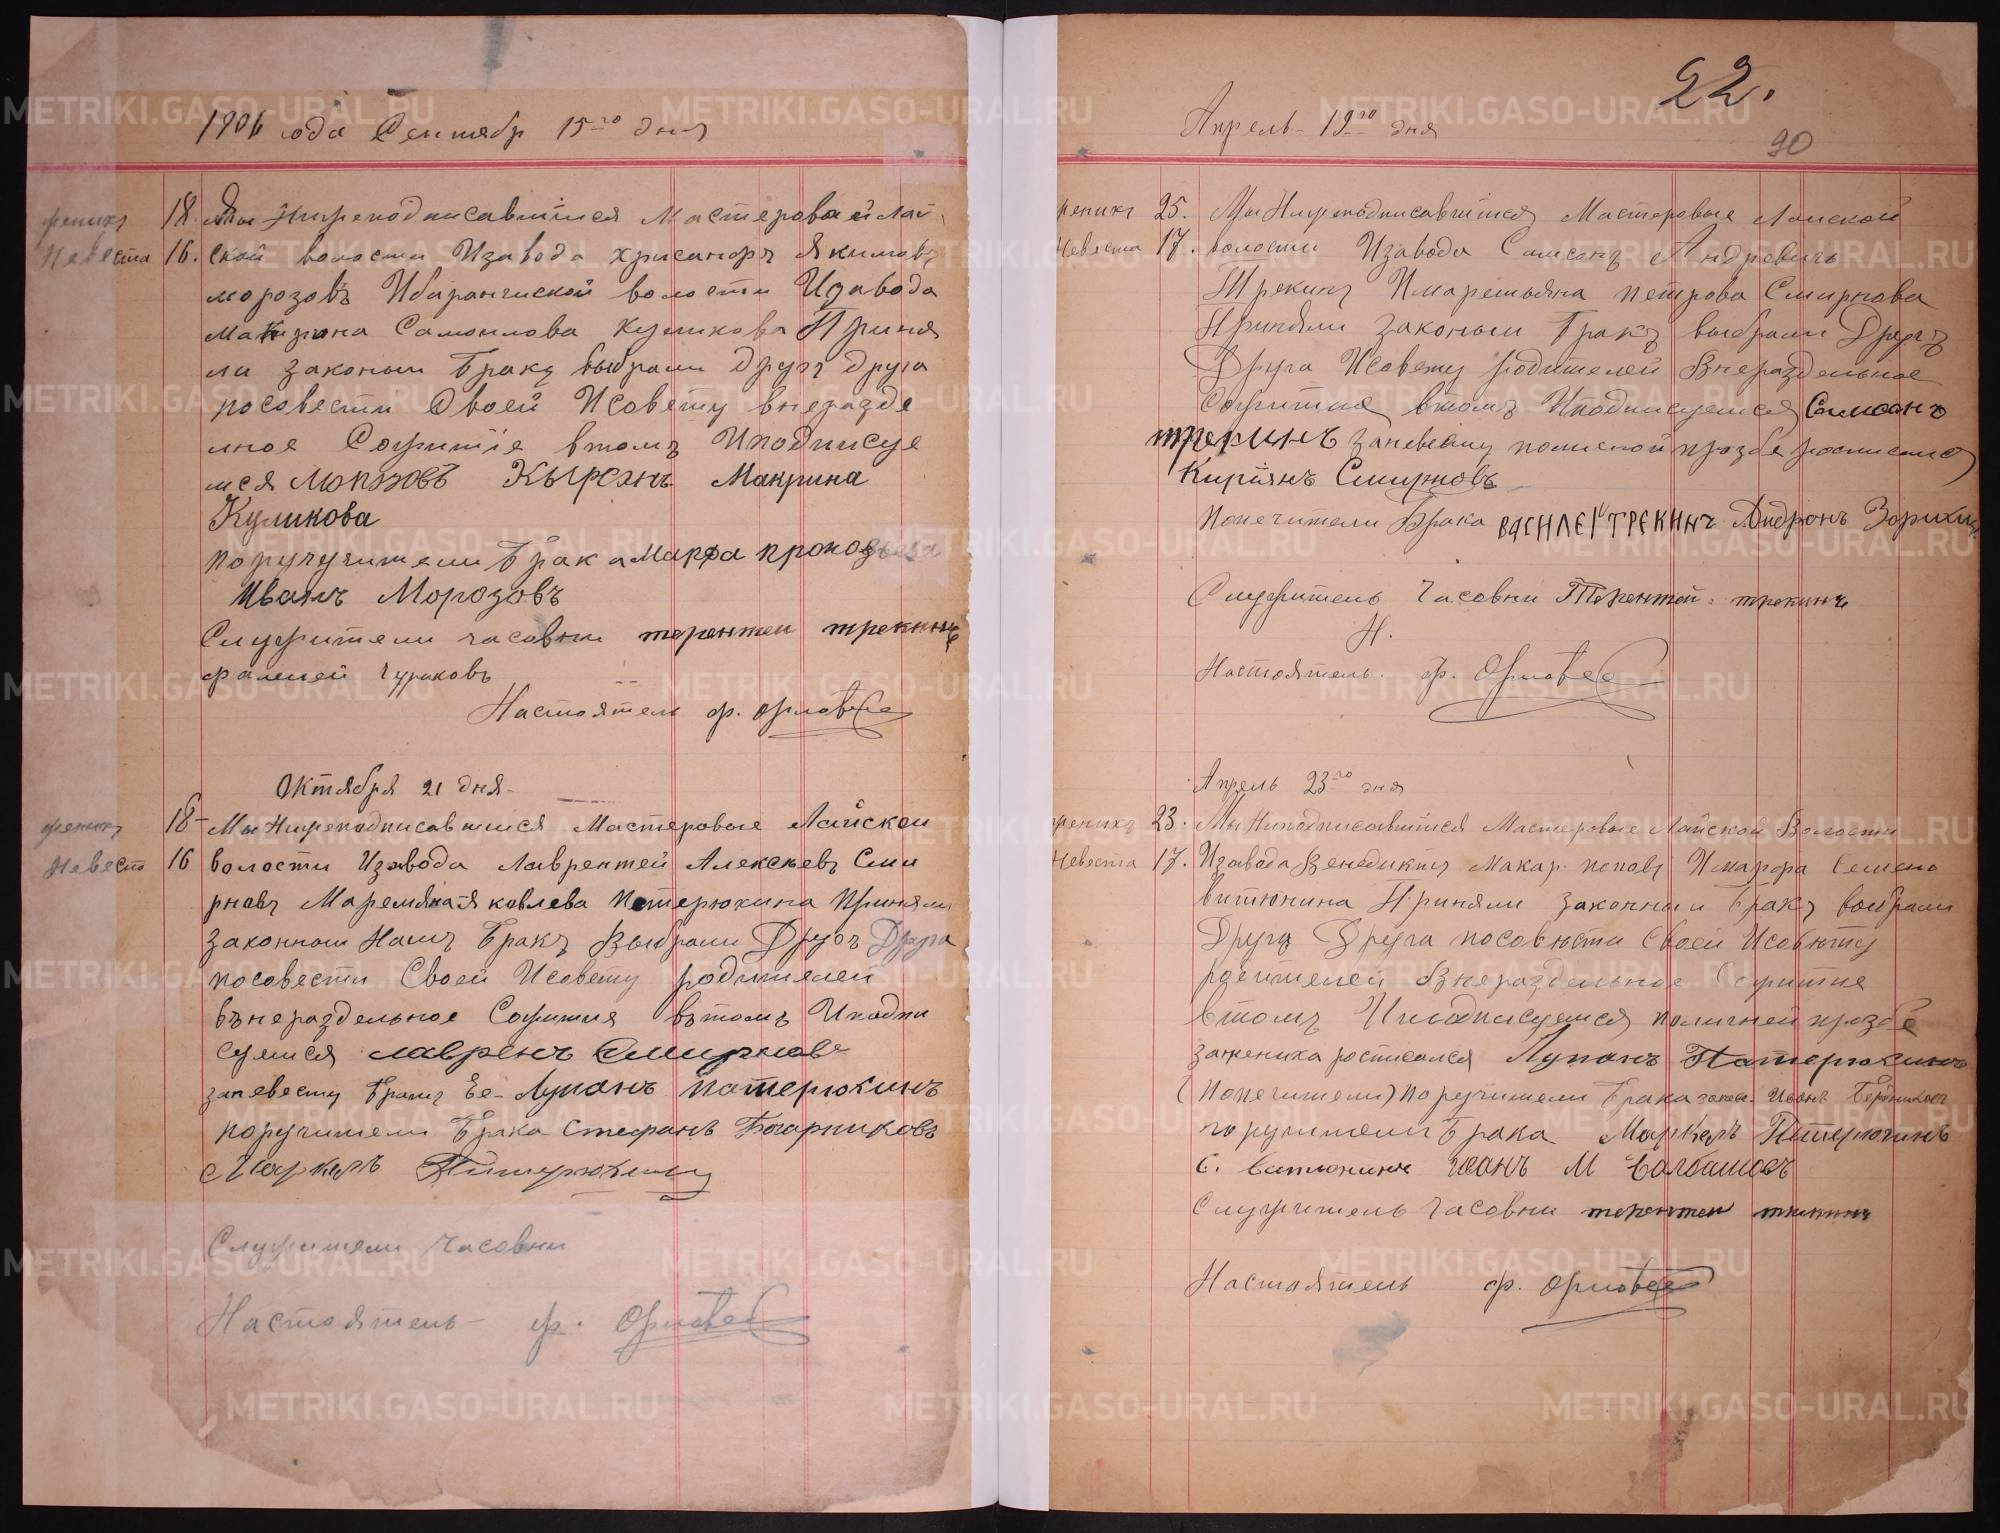 1906 года Сентябр 15го дня
жених 18. Мы Нижеподписавшиися Мастеровой Лай
Невеста 16. ской волости Изавода хрисанфъ Якимовъ
морозовъ Ибаранчиской волости Изавода
Макрина Самоилова Куликова Приня
ли законыи бракъ выбрали Другъ Друга
посовести Своей Исовету внеразде
лное Сожитїе втомъ Иподписуе
мся Морозовъ Кырсанъ Макрина
Куликова
поручучители брака Марфа
Иванъ Морозовъ
Служители часовни терентеи трекинъ
фалией Чураковъ
Настоятел ф. Орлов
Октября 21 дня
жених 18 Мы Нижеподписавшиися Мастеровые Лайской
Невеста 16 волости Изавода Лаврентей Алексѣевъ Сми
рновъ Маремьяна яковлева Потерюхина Приняли
законныи Нашъ бракъ Выбрали Другъ Друга
посовести Своей Исовету родителей
вънераздельное Сожития вътомъ Иподпи
суемся лаврень Смирнов
заневесту братъ Ее Лупанъ Патерюхинъ
поручители брака Стефанъ Бочарниковъ
Маркелъ
Служители Часовни
Настоятель ф. Орлов
22.
90
Апрель 19го дня
жених 25. Мы Нижеподписавшиися Мастеровые Лайской
Невеста 17. волости Изавода Самсонъ Андревичъ
Трекинъ Имаремьяна петрова Смирнова
Приняли законыи бракъ выбрали Другъ
Друга Исовету родителей Внераздельное
Сожития втомъ Иподписуемся Самсонъ
трекинъ заневесту полисной прозбе росписался
Кирїянъ Смирновъ
попечители Брака ВАСИЛЕЙ ТРЕКИНЪ Андронъ
Служитель Часовни Терентей трекинъ
Н.
Настоятель ф. Орлов
Апрель 23го дня
жених 23. Мы Ниподписавшиися Мастеровые Лайской Волости
Невеста 17. Изавода Венедиктъ Макар. поповъ Имарфа Семено
витюнина Приняли законныи бракъ выбрали
Другъ Друга посовюсти Своей Исовюту
Внераздельное Сожития
втомъ Иподписуемся поличней прозбе
заженика росписался Лупанъ Патерюхинъ
(Попечители) поручители брака Иванъ
поручители брака Маркелъ
С. Иванъ М
Служитель Часовни терентеи
Настоятель ф. Орлов
METRIKI.GASO-URAL.RU